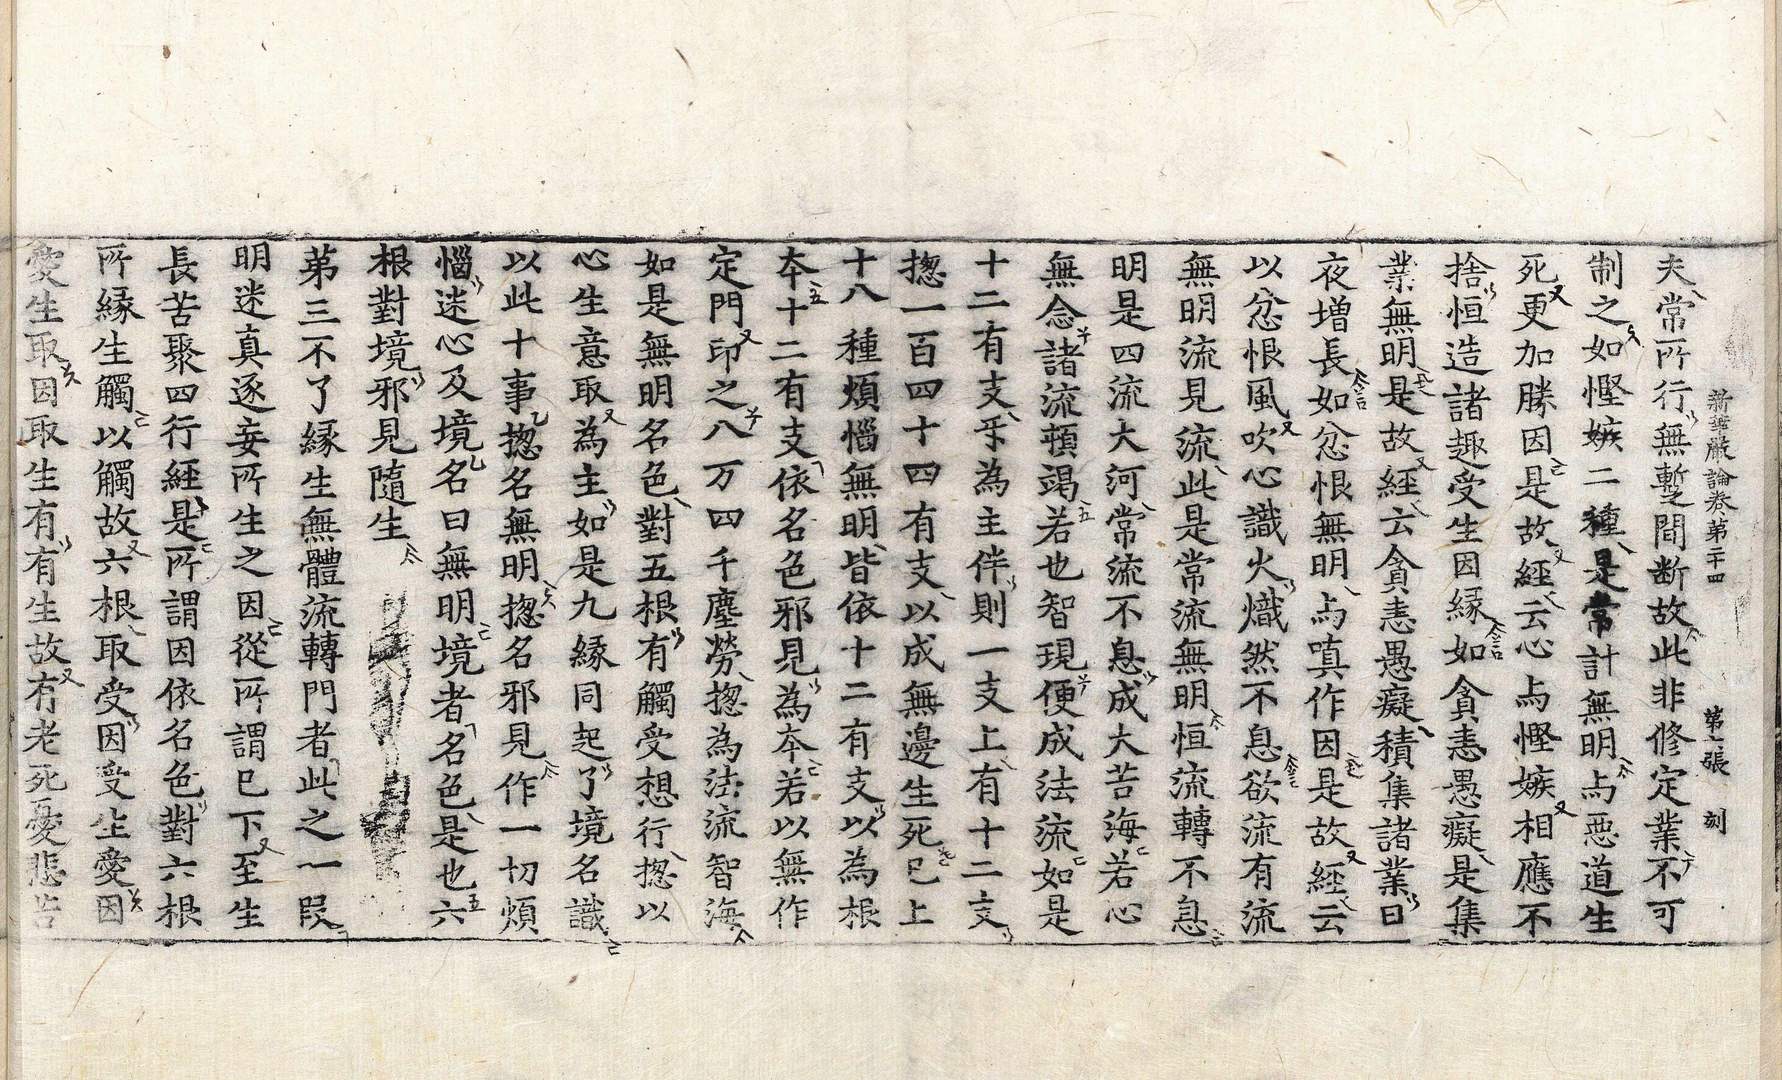 新華嚴論卷第二十四 第二張 刻
夫常所行無暫間断故此非修定業不可
制之如慳嫉二種是常計無明与惡道生
死更加勝因是故経云心与慳嫉相應不
捨恒造諸趣受生因縁如貪恚愚癡是集
業無明是故経云貪恚愚癡積集諸業日
夜増長如忿恨無明与嗔作因是故経云
以忿恨風吹心識火熾然不息欲流有流
無明流見流此是常流無明恒流轉不息
明是四流大河常流不息成大苦海若心
無念諸流頓竭若也智現便成法流如是
十二有支乎為主伴則一支上有十二支
揔一百四十四有支以成無邊生死已上
十八種煩惱無明皆依十二有支以為根
夲十二有支依名色邪見為夲若以無作
定門印之八万四千塵勞揔為法流智海
如是無明名色對五根有觸受想行揔以
心生意取為主如是九縁同起了境名識
以此十事揔名無明揔名邪見作一切煩
惱迷心及境名曰無明境者名色是也六
根對境邪見隨生
苐三不了縁生無體流轉門者此之一叚
明迷真逐妄所生之因從所謂已下至生
長苦聚四行経是所謂因依名色對六根
所縁生觸以觸故六根取受因受生愛因
愛生取因取生有有生故有老死憂悲苦